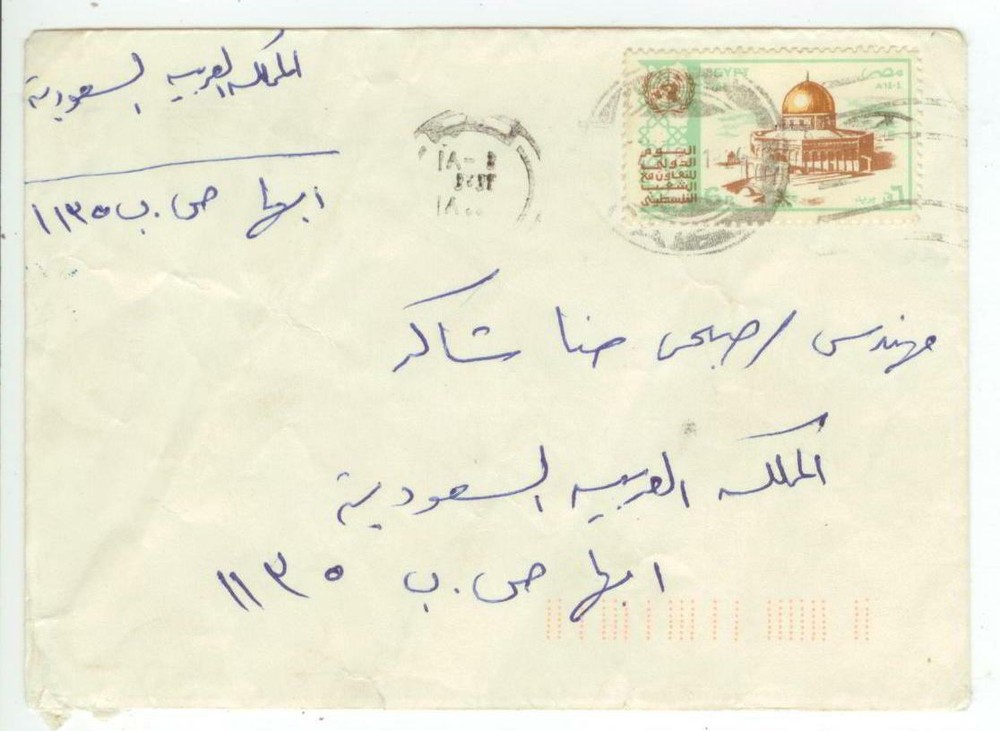 المملكة العربية السعودية
ابها ص.ب ١١٣٥
EGYPT
مصر
١٤٠٤ هـ
اليوم
الدولي
للتعاون مع
الشعب
الفلسطيني
مهندس / صبحى حنا شاكر
المملكة العربية السعودية
ابها ص.ب ١١٣٥